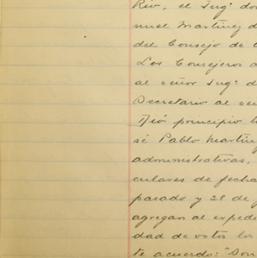 Rio, el Ing.º do
nuel Martínez d
del Consejo de 
Los Consejeros a
al señor Ing.º d
Secretario al se
Dió principio l
sé Pablo Martín
administrativas,
culares de fecha
pasado y 21 de
agregan al exped
dad de votos la
te acuerdo: "Don